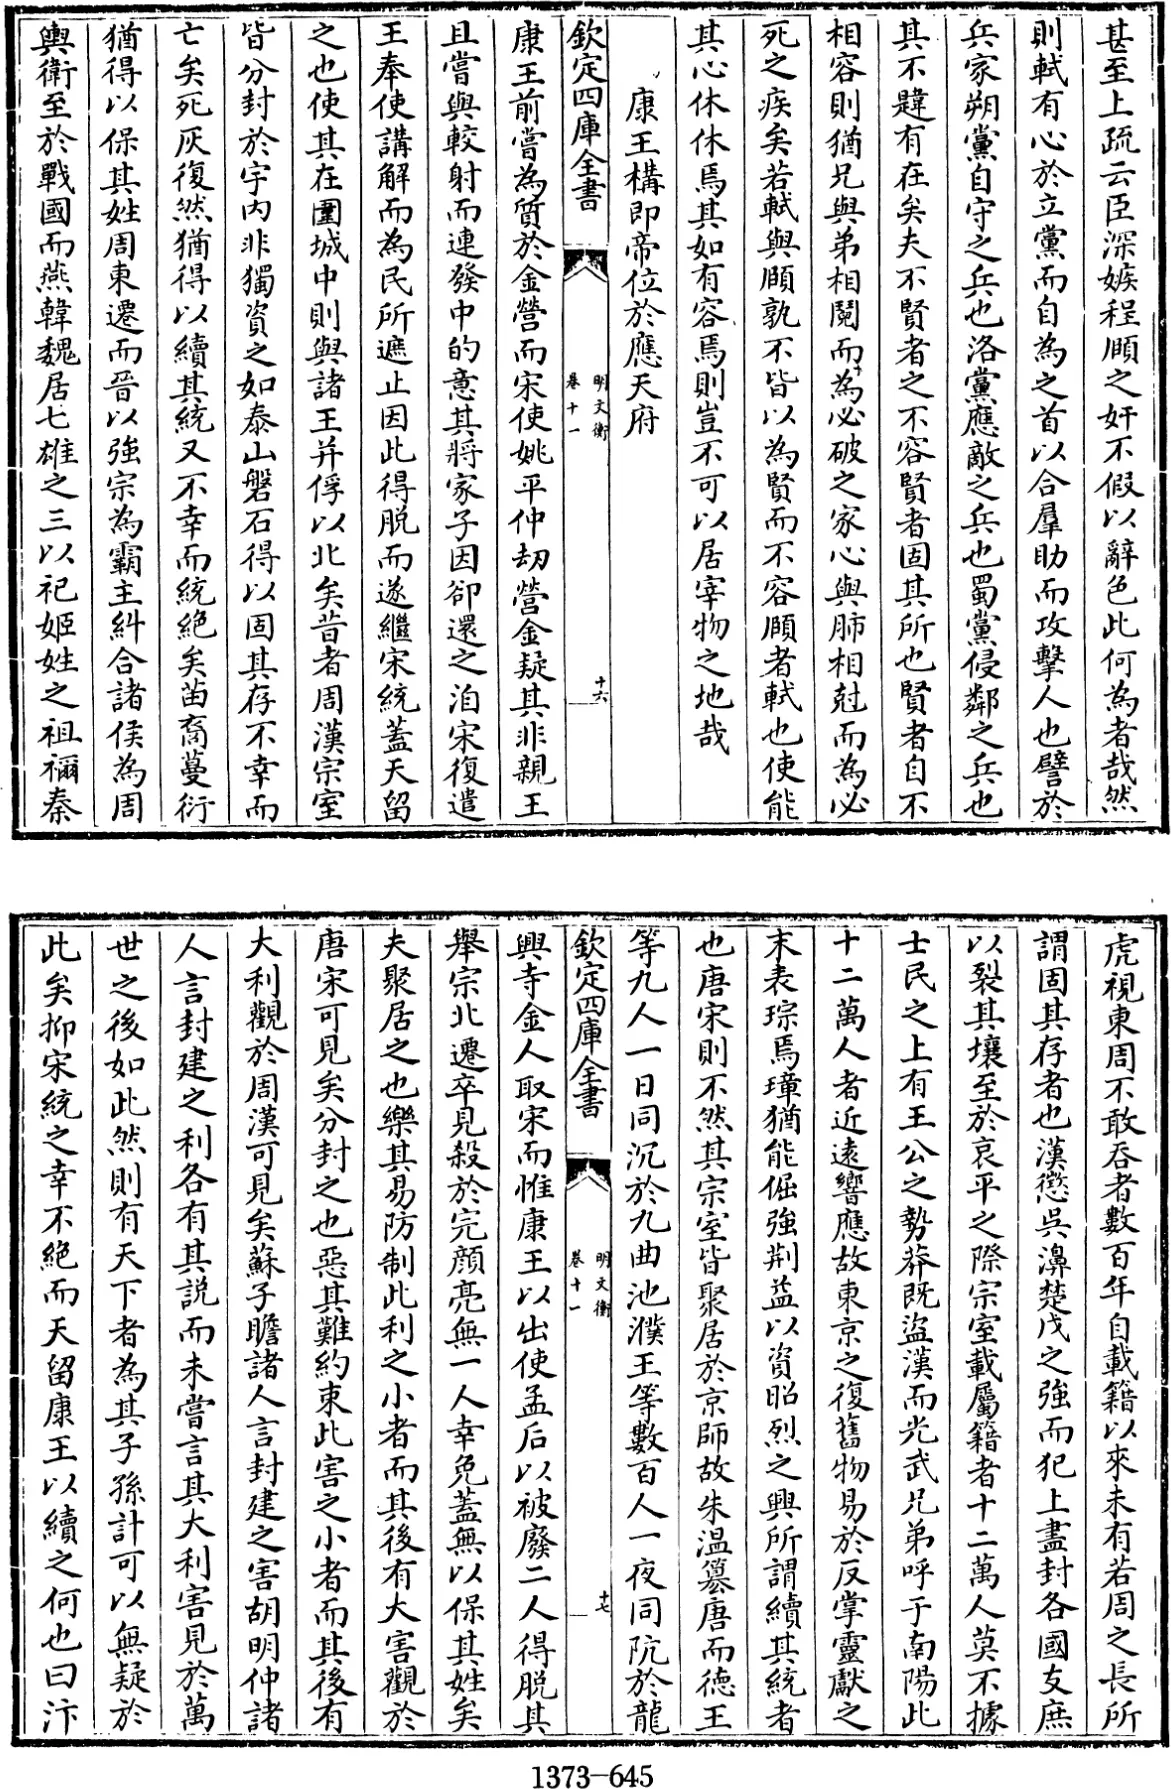 甚至上疏云臣深嫉程頤之奸不假以辭色此何為者哉然
則軾有心於立黨而自為之首以合羣助而攻擊人也譬於
兵家朔黨自守之兵也洛黨應敵之兵也蜀黨侵鄰之兵也
其不韙有在矣夫不賢者之不容賢者固其所也賢者自不
相容則猶兄與弟相鬩而為必破之家心與肺相尅而為必
死之疾矣若軾與頤孰不皆以為賢而不容頤者軾也使能
其心休休焉其如有容焉則豈不可以居宰物之地哉
康王構即帝位於應天府
欽定四庫全書
明文衡
卷十一
十六
康王前嘗為質於金營而宋使姚平仲刼營金疑其非親王
且嘗與較射而連發中的意其將家子因卻還之洎宋復遣
王奉使講解而為民所遮止因此得脱而遂繼宋統蓋天留
之也使其在圍城中則與諸王并俘以北矣昔者周漢宗室
皆分封於宇内非獨資之如泰山磐石得以固其存不幸而
亡矣死灰復然猶得以續其統又不幸而統絶矣苗裔蔓衍
猶得以保其姓周東遷而晉以強宗為霸主糾合諸侯為周
輿衛至於戰國而燕韓魏居七雄之三以祀姬姓之祖禰秦
虎視東周不敢吞者數百年自載籍以來未有若周之長所
謂固其存者也漢懲吳濞楚戊之強而犯上盡封各國支庶
以裂其壤至於哀平之際宗室載屬籍者十二萬人莫不據
士民之上有王公之勢莽既盗漢而光武兄弟呼于南陽此
十二萬人者近遠響應故東京之復舊物易於反掌靈獻之
末表琮焉璋猶能倔強荆益以資昭烈之興所謂續其統者
也唐宋則不然其宗室皆聚居於京師故朱温簒唐而德王
等九人一日同沉於九曲池濮王等數百人一夜同阬於龍
欽定四庫全書
明文衡
卷十一
十七
興寺金人取宋而惟康王以出使孟后以被廢二人得脱其
舉宗北遷卒見殺於完顔亮無一人幸免蓋無以保其姓矣
夫聚居之也樂其易防制此利之小者而其後有大害觀於
唐宋可見矣分封之也惡其難約束此害之小者而其後有
大利觀於周漢可見矣蘇子瞻諸人言封建之害胡明仲諸
人言封建之利各有其説而未嘗言其大利害見於萬
世之後如此然則有天下者為其子孫計可以無疑於
此矣抑宋統之幸不絶而天留康王以續之何也曰汴
1373-645